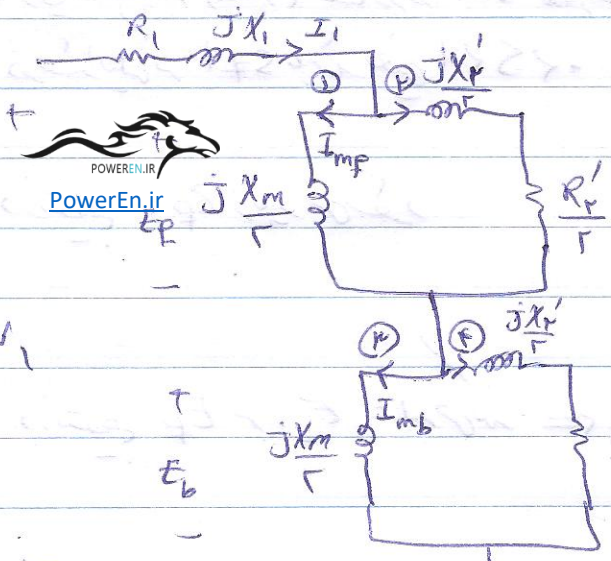 R₁ jX₁ I₁
① ② jX₂′/۲
+
I_mf
POWEREN.IR
PowerEn.ir
E_f jX_m/۲ R₂′/۲
−
③ ④ jX₂′/۲
V₁
+
I_mb
jX_m/۲
E_b
−